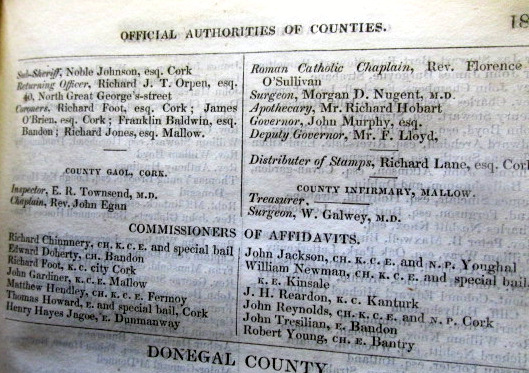 OFFICIAL AUTHORITIES OF COUNTIES.
18
Sub-Sheriff, Noble Johnson, esq. Cork
Returning Officer, Richard J. T. Orpen, esq.
40, North Great George's-street
Coroners, Richard Foot, esq. Cork; James
O'Brien, esq. Cork; Franklin Baldwin, esq.
Bandon; Richard Jones, esq. Mallow.
COUNTY GAOL, CORK.
Inspector, E. R. Townsend, M.D.
Chaplain, Rev. John Egan
Roman Catholic Chaplain, Rev. Florence
O'Sullivan
Surgeon, Morgan D. Nugent, M.D.
Apothecary, Mr. Richard Hobart
Governor, John Murphy, esq.
Deputy Governor, Mr. F. Lloyd,
Distributer of Stamps, Richard Lane, esq. Cork
COUNTY INFIRMARY, MALLOW.
Treasurer,
Surgeon, W. Galwey, M.D.
COMMISSIONERS OF AFFIDAVITS.
Richard Chinnery, CH. K. C. E. and special bail
Edward Doherty, CH. Bandon
Richard Foot, K. C. city Cork
John Gardiner, K. C. E. Mallow
Matthew Hendley, CH. K. C. E. Fermoy
Thomas Howard, E. and special bail, Cork
Henry Hayes Jagoe, E. Dunmanway
John Jackson, CH. K. C. E. and N. P. Youghal
William Newman, CH. K. C. E. and special bail,
K. E. Kinsale
J. H. Reardon, K. C. Kanturk
John Reynolds, CH. K. C. E. and N. P. Cork
John Tresilian, E. Bandon
Robert Young, CH. E. Bantry
DONEGAL COUNTY